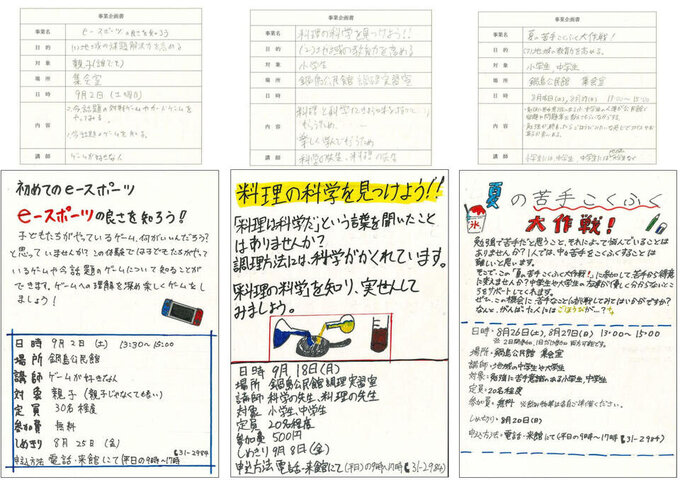 事業企画書
事業名 eースポーツの良さを知ろう
目的 (1)地域の課題解決力を高める
対象 親子(誰でも)
場所 集会室
日時 9月2日(土曜日)
内容
講師 ゲームが好きな人
事業企画書
事業名 料理の科学を見つけよう!!
目的 (2)地域の教育力を高める
対象 小学生
場所 鍋島公民館 調理実習室
日時
内容
楽しく学んでもらうため
講師 科学の先生、料理の先生
事業企画書
事業名 夏の苦手こくふく大作戦!
目的 (2)地域の教育力を高める。
対象 小学生、中学生
場所 鍋島公民館 集会室
日時 8月26日(土)、8月27日(日) 13:00～15:00
内容
講師
初めてのeースポーツ
eースポーツの良さを知ろう!
子どもたちがやっているゲーム、何がいいんだろう?
と思っていませんか?この体験では子どもたちがやって
いるゲームや今話題のゲームについて知ることが
できます。ゲームへの理解を深め楽しくゲームをし
ましょう!
日時 9月2日(土) 13:30～15:00
場所 鍋島公民館
講師 ゲームが好きな人
対象 親子(親子じゃなくても書い)
定員 30名程度
参加費 無料
しめきり 8月25日(金)
申込方法 電話・来館にて(平日の9時～17時 ☎31-2984)
料理の科学を見つけよう!!
「料理は科学だ」という言葉を聞いたこと
はありませんか?
調理方法には、科学がかくれています。
「料理の科学」を知り、実せんして
みましょう。
日時 9月18日(月)
場所 鍋島公民館調理実習室
講師 科学の先生、料理の先生
対象 小学生、中学生
定員 20名程度
参加費 500円
しめ切り 9月8日(金)
申込方法 電話・来館にて(平日の9時～17時 ☎31-2984)
夏の苦手こくふく
大作戦!
氷
勉強で苦手だと思うこと、それによって悩んでいることは
ありませんか?1人では、中々苦手をこくふくすることは
難しいと思います。
そこで、この「夏の苦手こくふく大作戦!」に参加して苦手から得意
に変えませんか?中学生や大学生の方々が優しく分からないとこ
ろをサポートしてくれます。
ぜひ、この機会に苦手なことに挑戦してみてはいかがですか?
なんと、がんばった人にはごほうびが…?
日時・8月26日(土)、8月27日(日) 13:00～15:00
場所・鍋島公民館 集会室
講師・地域の中学生や大学生
対象・勉強に苦手意識のある小学生、中学生
定員・20名程度
参加費・無料
しめきり・8月20日(日)
申込方法・電話・来館にて(平日の9時～17時 ☎31-2984)